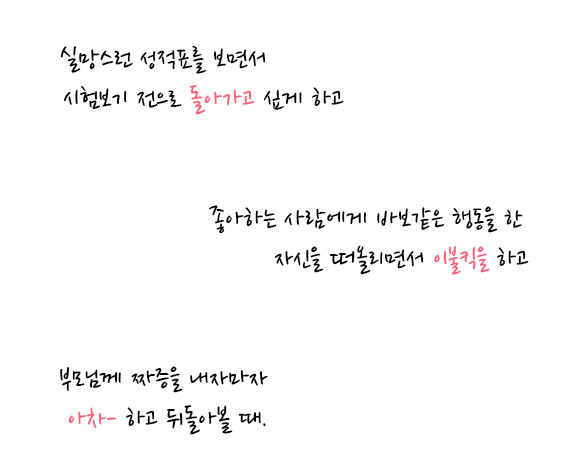 실망스런 성적표를 보면서
시험보기 전으로 돌아가고 싶게 하고
좋아하는 사람에게 바보같은 행동을 한
자신을 떠올리면서 이불킥을 하고
부모님께 짜증을 내자마자
아차- 하고 뒤돌아볼 때.